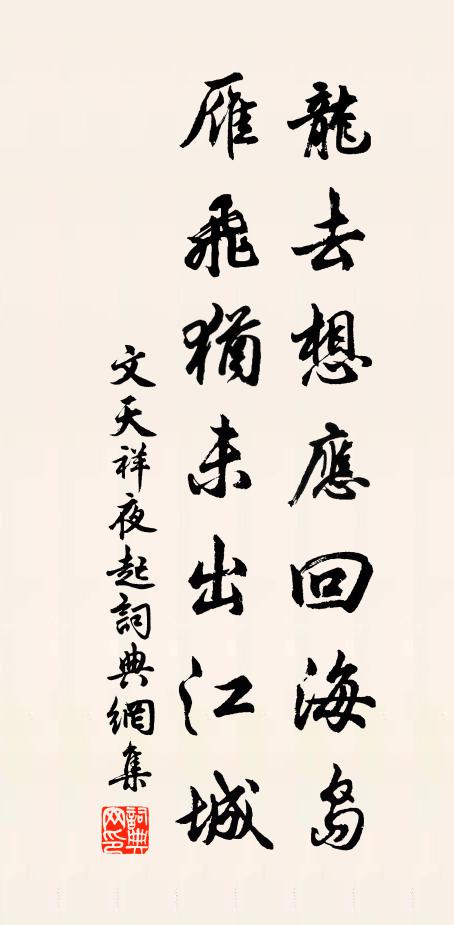 龍去想應回海島
雁飛猶未出江城
文天祥夜起詞典網集
詞典网印